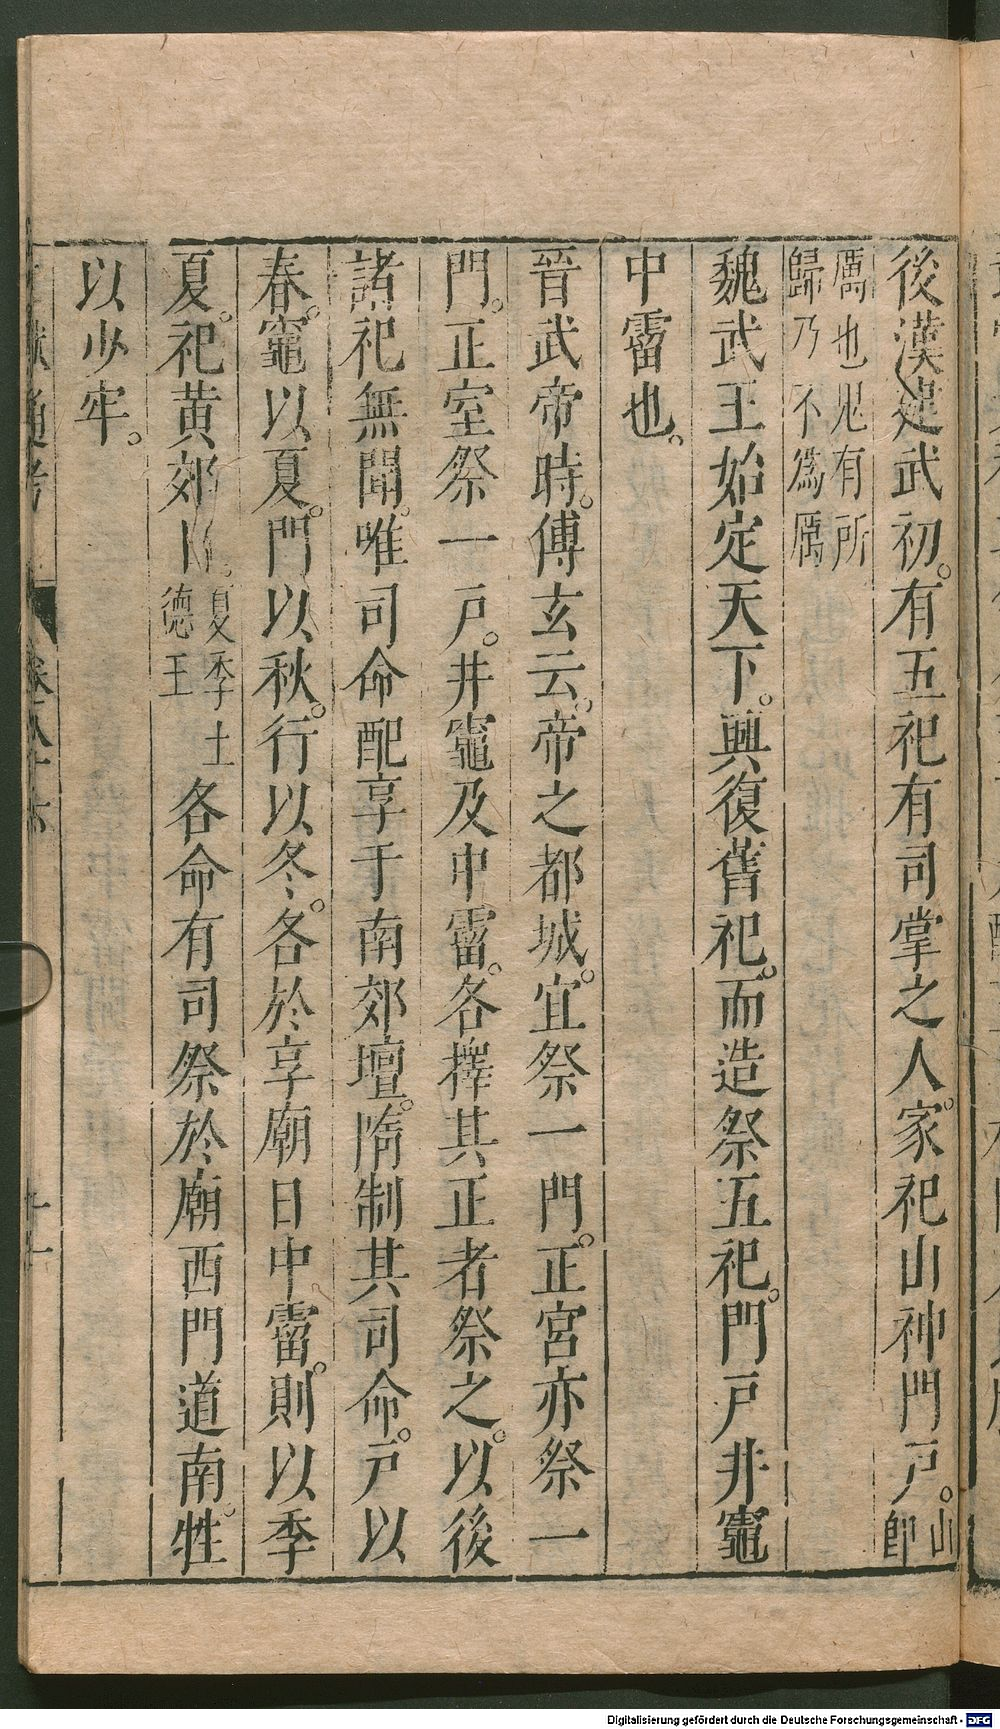 後漢建武初。有五祀有司掌之人家。祀山神門戸。山即
厲也鬼有所歸乃不爲厲
魏武王始定天下。興復舊祀。而造祭五祀。門戸井竈
中霤也。
晉武帝時。傅玄云。帝之都城。宜祭一門。正宮亦祭一
門。正室祭一戸。井竈及中霤。各擇其正者祭之。以後
諸祀無聞。唯司命配享于南郊壇。隋制其司命。戸以
春。竈以夏。門以秋。行以冬。各於享廟日中霤。則以季
夏。祀黄郊日。夏季土德王各命有司祭於廟西門道南。牲
以少牢。
Digitalisierung gefördert durch die Deutsche Forschungsgemeinschaft - DFG